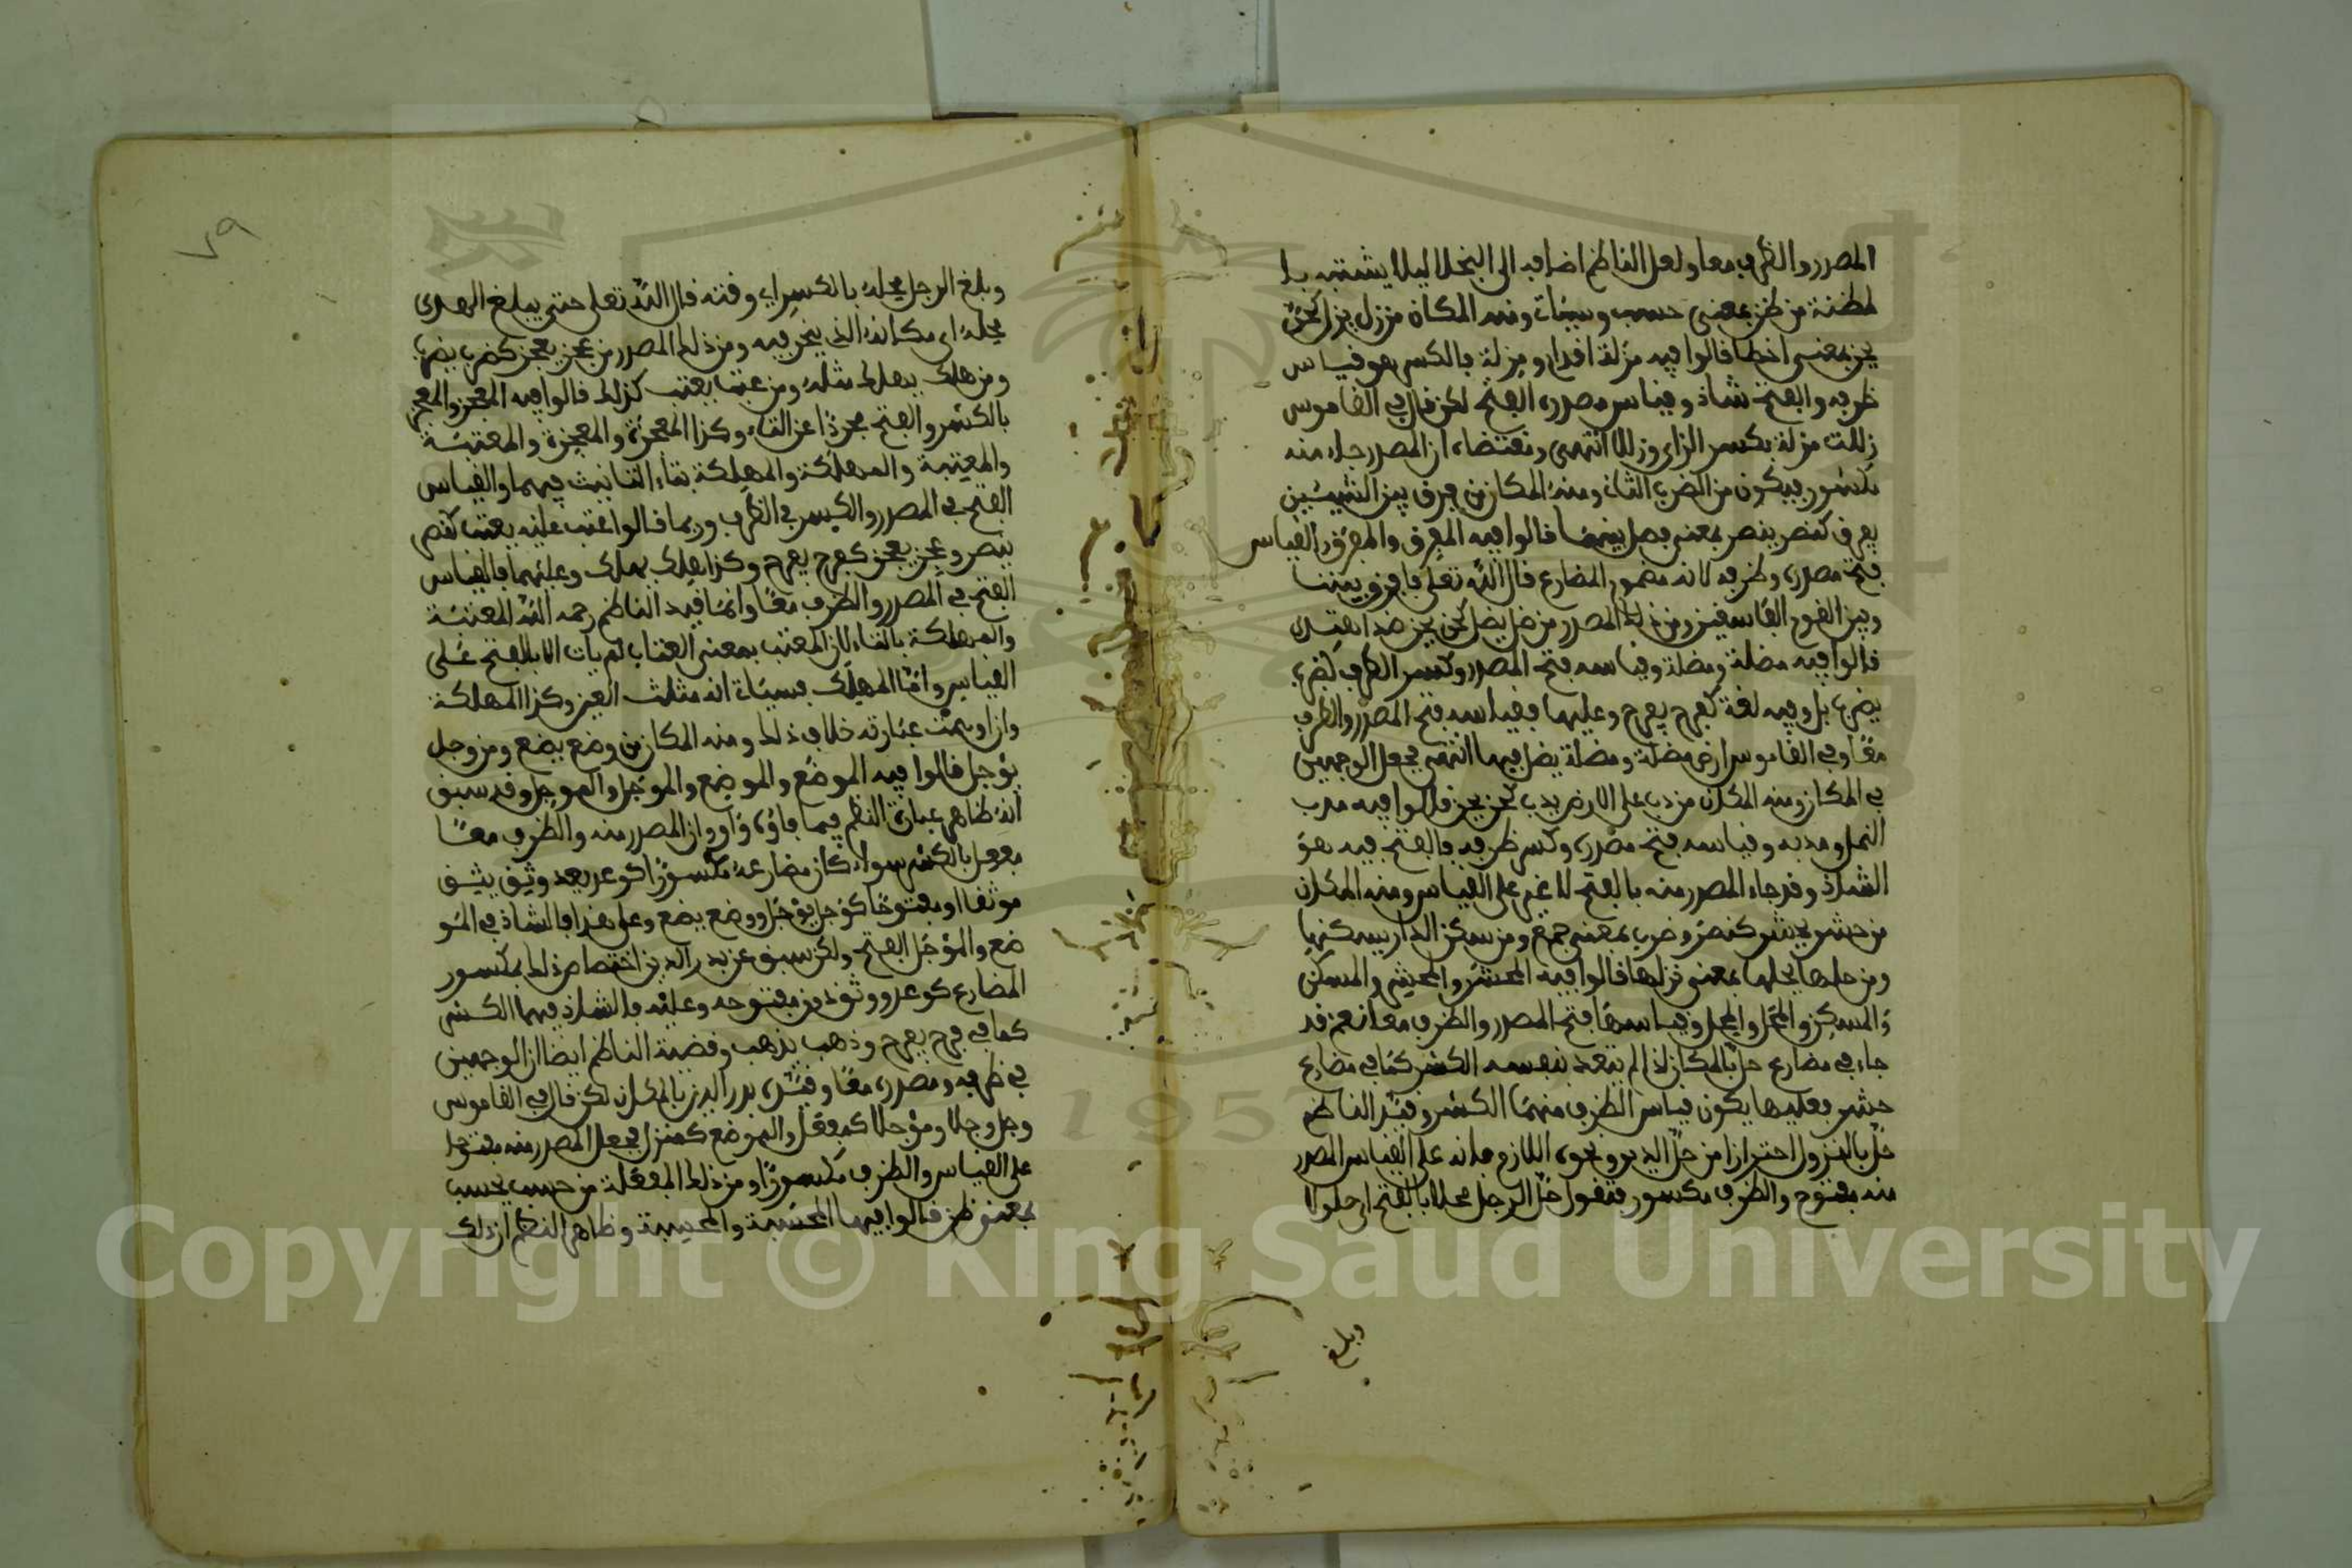 المصدر والظرف معا ولعل الناظم اضافه الى البخلا ليلا يشتبه بلا
لمظنة من ظن بمعنى حسب وسيأت ومنه المكان من زل يزل كحن
يحن بمعنى اخطا فالوا فيه مزلة افدام ومزلة بالكسر هو فياس
ظرفه والفتح شاذ وفياس مصدره الفتح لكن فال في الفاموس
زللت مزلة بكسر الزاى وزللا انتهى ومفتضاه ان المصدر جاء منه
مكسور فيكون من الضرب الثانى ومنه المكان من فرق بين الشيئين
يفرق كنصر ينصر بمعنى فصل بينهما فالوا فيه المفرق والمفرق والفياس
فتح مصدره وظرفه لانه مضموم المضارع فال الله تعلى فافرق بيننا
وبين الفوم الفاسفين ومن ذلك المصدر من ضل يضل كحن يحن ضد اهتدى
فالوا فيه مضلة ومضلة وفياسه فتح المصدر وكسر الظرف كضرب
يضرب بل وفيه لغة كفرح يفرح وعليها ففياسه فتح المصدر والظرف
معا وفي الفاموس ارض مضلة ومضلة يضل فيها انتهى فجعل الوجهين
في المكان ومنه المكان من دب على الارض يدب كحن يحن فالوا فيه مدب
النمل ومدبه وفياسه فتح مصدره وكسر ظرفه فالفتح فيه هو
الشاذ وفد جاء المصدر منه بالفتح لا غير على الفياس ومنه المكان
من حشر يحشر كنصر وضرب بمعنى جمع ومن سكن الدار يسكنها
ومن حلها يحلها بمعنى نزلها فالوا فيه المحشر والمحشر والمسكن
والمسكن والمحل والمحل وفياسها فتح المصدر والظرف معا نعم فد
جاء في مضارع حل بالمكان اذا لم يتعد بنفسه الكسر كما في مضارع
حشر فعليها يكون فياس الظرف منهما الكسر وفيد الناظم
حل بالنزول احترازا من حل الدين ونحوه اللازم فانه على الفياس المصدر
منه مفتوح والظرف مكسور فتفول حل الرجل محلا بالفتح اى حلولا
وبلغ
٧٩
وبلغ الرجل محله بالكسر اى وفته فال الله تعلى حتى يبلغ الهدى
محله اى مكانه الذى ينحر فيه ومن ذلك المصدر من عجز يعجز كضرب يضرب
ومن هلك يهلك مثله ومن عتب يعتب كذلك فالوا فيه المعجز والمعجز
بالكسر والفتح مجردا عن التاء وكذا المعجزة والمعجزة والمعتبة
والمعتبة والمهلكة والمهلكة بتاء التانيث فيهما والفياس
الفتح في المصدر والكسر في الظرف وربما فالوا عتب عليه يعتب كنصر
ينصر وعجز يعجز كفرح يفرح وكذا هلك يهلك وعليهما فالفياس
الفتح في المصدر والظرف معا وانما فيد الناظم رحمه الله المعتبة
والمهلكة بالتاء لان المعتب بمعنى العتاب لم يات الا بالفتح على
الفياس واما المهلك فسيات انه مثلث العين وكذا المهلكة
وان اوهمت عبارته خلاف ذلك ومنه المكان من وضع يضع ومن وجل
يوجل فالوا فيه الموضع والموضع والموجل والموجل وفد سبق
انه ظاهر عبارة النظم فيما فاؤه واو وان المصدر منه والظرف معا
مفعل بالكسر سواء كان مضارعه مكسورا كوعد يعد وثق يثق
موثفا او مفتوحا كوجل يوجل ووضع يضع وعلى هذا فالشاذ في المو
ضع والموجل الفتح ولكن سبق عن بدر الدين اختصاص ذلك بمكسور
المضارع كوعد ووثق دون مفتوحه وعليه فالشاذ فيهما الكسر
كما في فرح يفرح وذهب يذهب وفضية الناظم ايضا ان الوجهين
في ظرفه ومصدره معا وفيده بدر الدين بالمكان لكن فال في الفاموس
وجل وجلا وموجلا كمفعل والموضع كمنزل فجعل المصدر منه مفتوحا
على الفياس والظرف مكسورا ومن ذلك المفعلة من حسب يحسب
بمعنى ظن فالوا فيها المحسبة والمحسبة وظاهر النظم ان ذلك
Copyright © King Saud University
1957